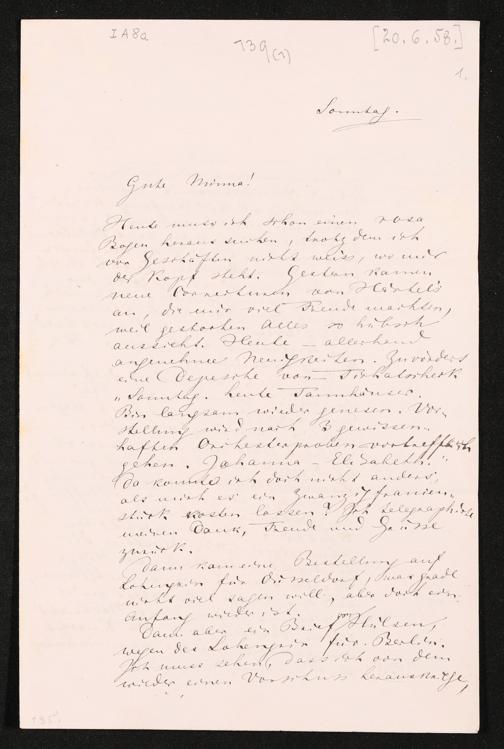 I A 8a
139 (1)
[20. 6. 58.]
1.
Sonntag.
Gute Minna!
Heute muss ich schon einen rosa
Bogen heraus suchen, trotzdem ich
vor Geschäften nicht weiss, wo mir
der Kopf steht. Gestern kamen
neue Correcturen von Härtel's
an, die mir viel Freude machten,
weil gestochen Alles so hübsch
aussieht. Heute – allerhand
angenehme Neuigkeiten. Zuvörderst
eine Depesche von Tichatscheck
"Sonntag. heute Tannhäuser.
Bin langsam wieder genesen. Vor-
stellung wird nach 3 gewissen-
haften Orchesterproben vortrefflich
gehen. Johanna – Elisabeth."
Da konnte ich doch nicht anders,
als mich es ein Zwanzigfranken-
stück kosten lassen? Ich telegraphirte
meinen Dank, Freude und Grüsse
zurück.
Dann kam eine Bestellung auf
Lohengrin für Düsseldorf, was grade
nicht viel sagen will, aber doch ein
Anfang wieder ist.
Dann aber ein Brief von Hülsen,
wegen des Lohengrin für Berlin.
Ich muss sehen, dass ich von dem
wieder einen Vorschuss herauskriege,